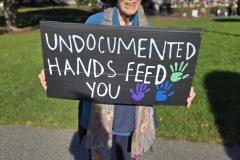 UNDOCUMENTED
HANDS FEED
YOU